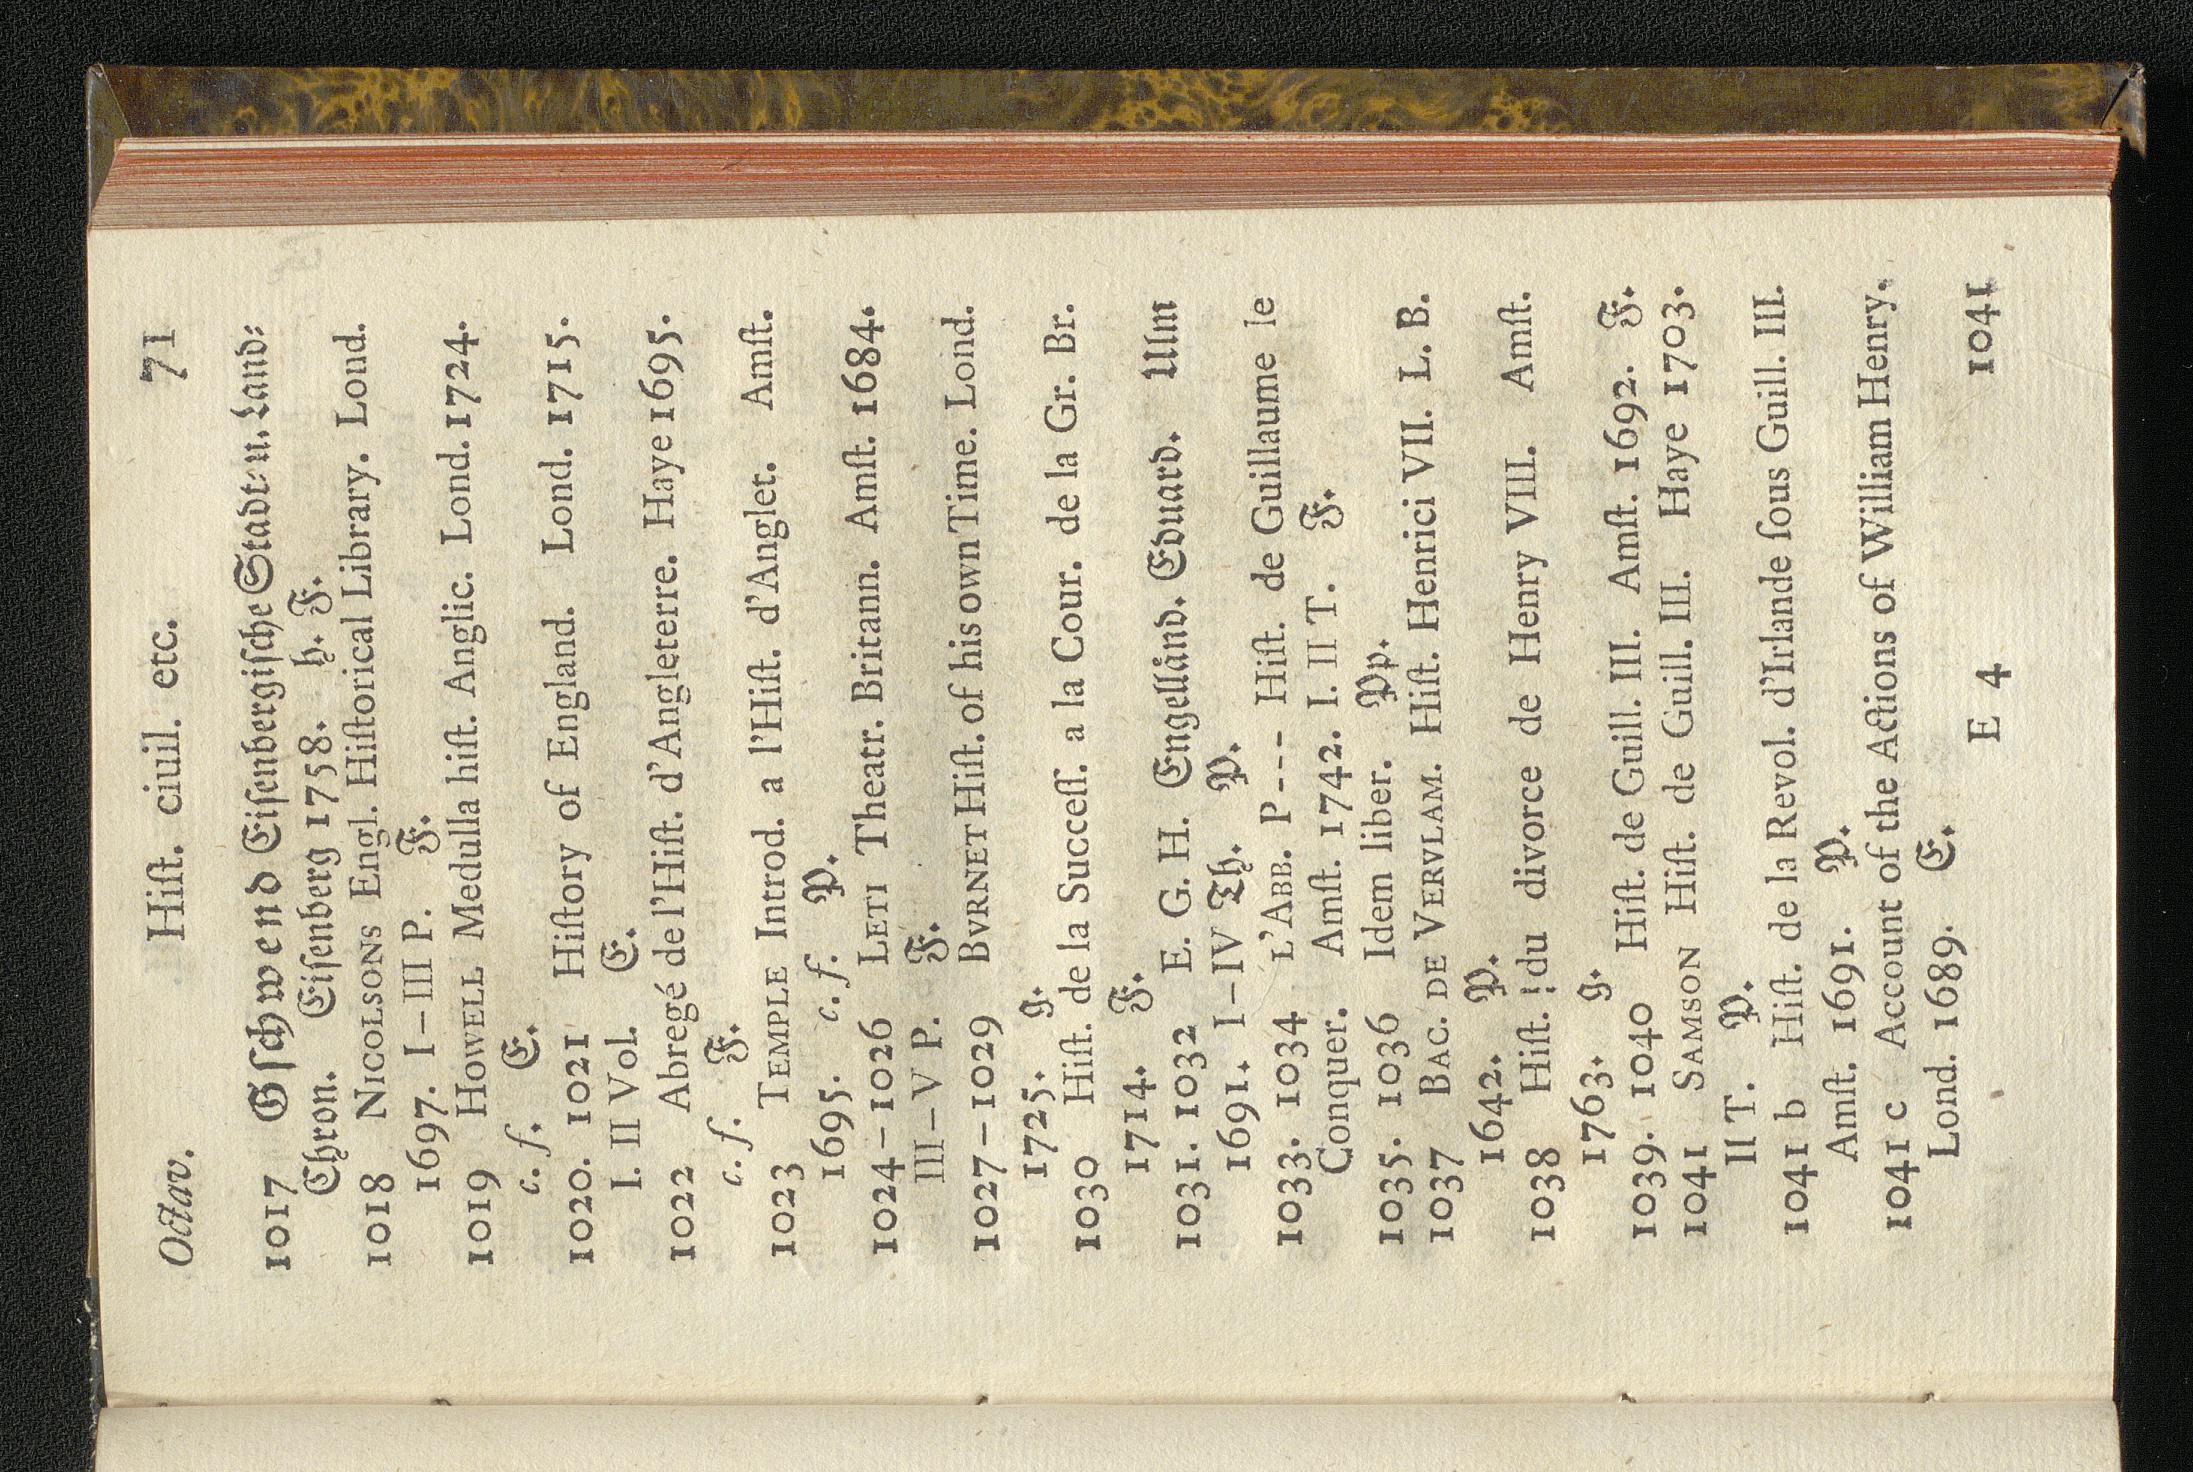 Octav. Hiſt. ciuil. etc. 71
1017 Gſchwend Eiſenbergiſche Stadt- u. Land-
Chron. Eiſenberg 1758. h. F.
1018 NICOLSONS Engl. Hiſtorical Library. Lond.
1697. I-III P. F.
1019 HOWELL Medulla hiſt. Anglic. Lond. 1724.
c. f. E.
1020. 1021 Hiſtory of England. Lond. 1715.
I. II Vol. E.
1022 Abregé de l'Hiſt. d'Angleterre. Haye 1695.
c. f. F.
1023 TEMPLE Introd. a l'Hiſt. d'Anglet. Amſt.
1695. c. f. P.
1024-1026 LETI Theatr. Britann. Amſt. 1684.
III-V P. F.
1027-1029 BVRNET Hiſt. of his own Time. Lond.
1725. g.
1030 Hiſt. de la Succeſſ. a la Cour. de la Gr. Br.
1714. F.
1031. 1032 E. G. H. Engelländ. Eduard. Ulm
1691. I-IV Th. P.
1033. 1034 L'ABB. P--- Hiſt. de Guillaume le
Conquer. Amſt. 1742. I. II T. F.
1035. 1036 Idem liber. Pp.
1037 BAC. DE VERVLAM. Hiſt. Henrici VII. L. B.
1642. P.
1038 Hiſt. du divorce de Henry VIII. Amſt.
1763. g.
1039. 1040 Hiſt. de Guill. III. Amſt. 1692. F.
1041 SAMSON Hiſt. de Guill. III. Haye 1703.
II T. P.
1041 b Hiſt. de la Revol. d'Irlande ſous Guill. III.
Amſt. 1691. P.
1041 c Account of the Actions of William Henry.
Lond. 1689. E.
E 4 1041